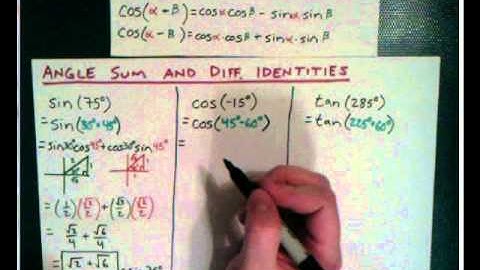 cos(α+β)=cosα cosβ - sinα sinβ
cos(α-β)=cosα·cosβ + sinα sinβ
ANGLE SUM AND DIFF. IDENTITIES
sin(75°)
=sin(30°+45°)
=sin30°cos45°+cos30°sin45°
=(1/2)(√2/2)+(√3/2)(√2/2)
=√2/4+√6/4
=√2+√6
cos(-15°)
=cos(45°-60°)
=
tan(285°)
=tan(225°+60°)